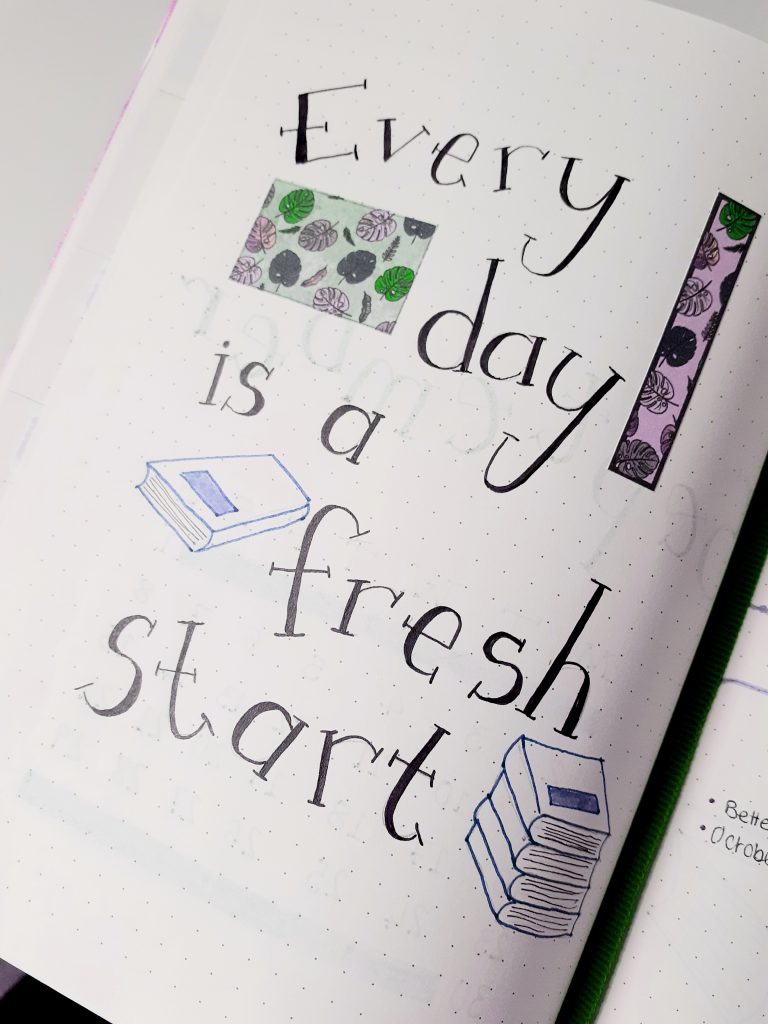 Every
day
is a
fresh
start
• Bette
• Octobe